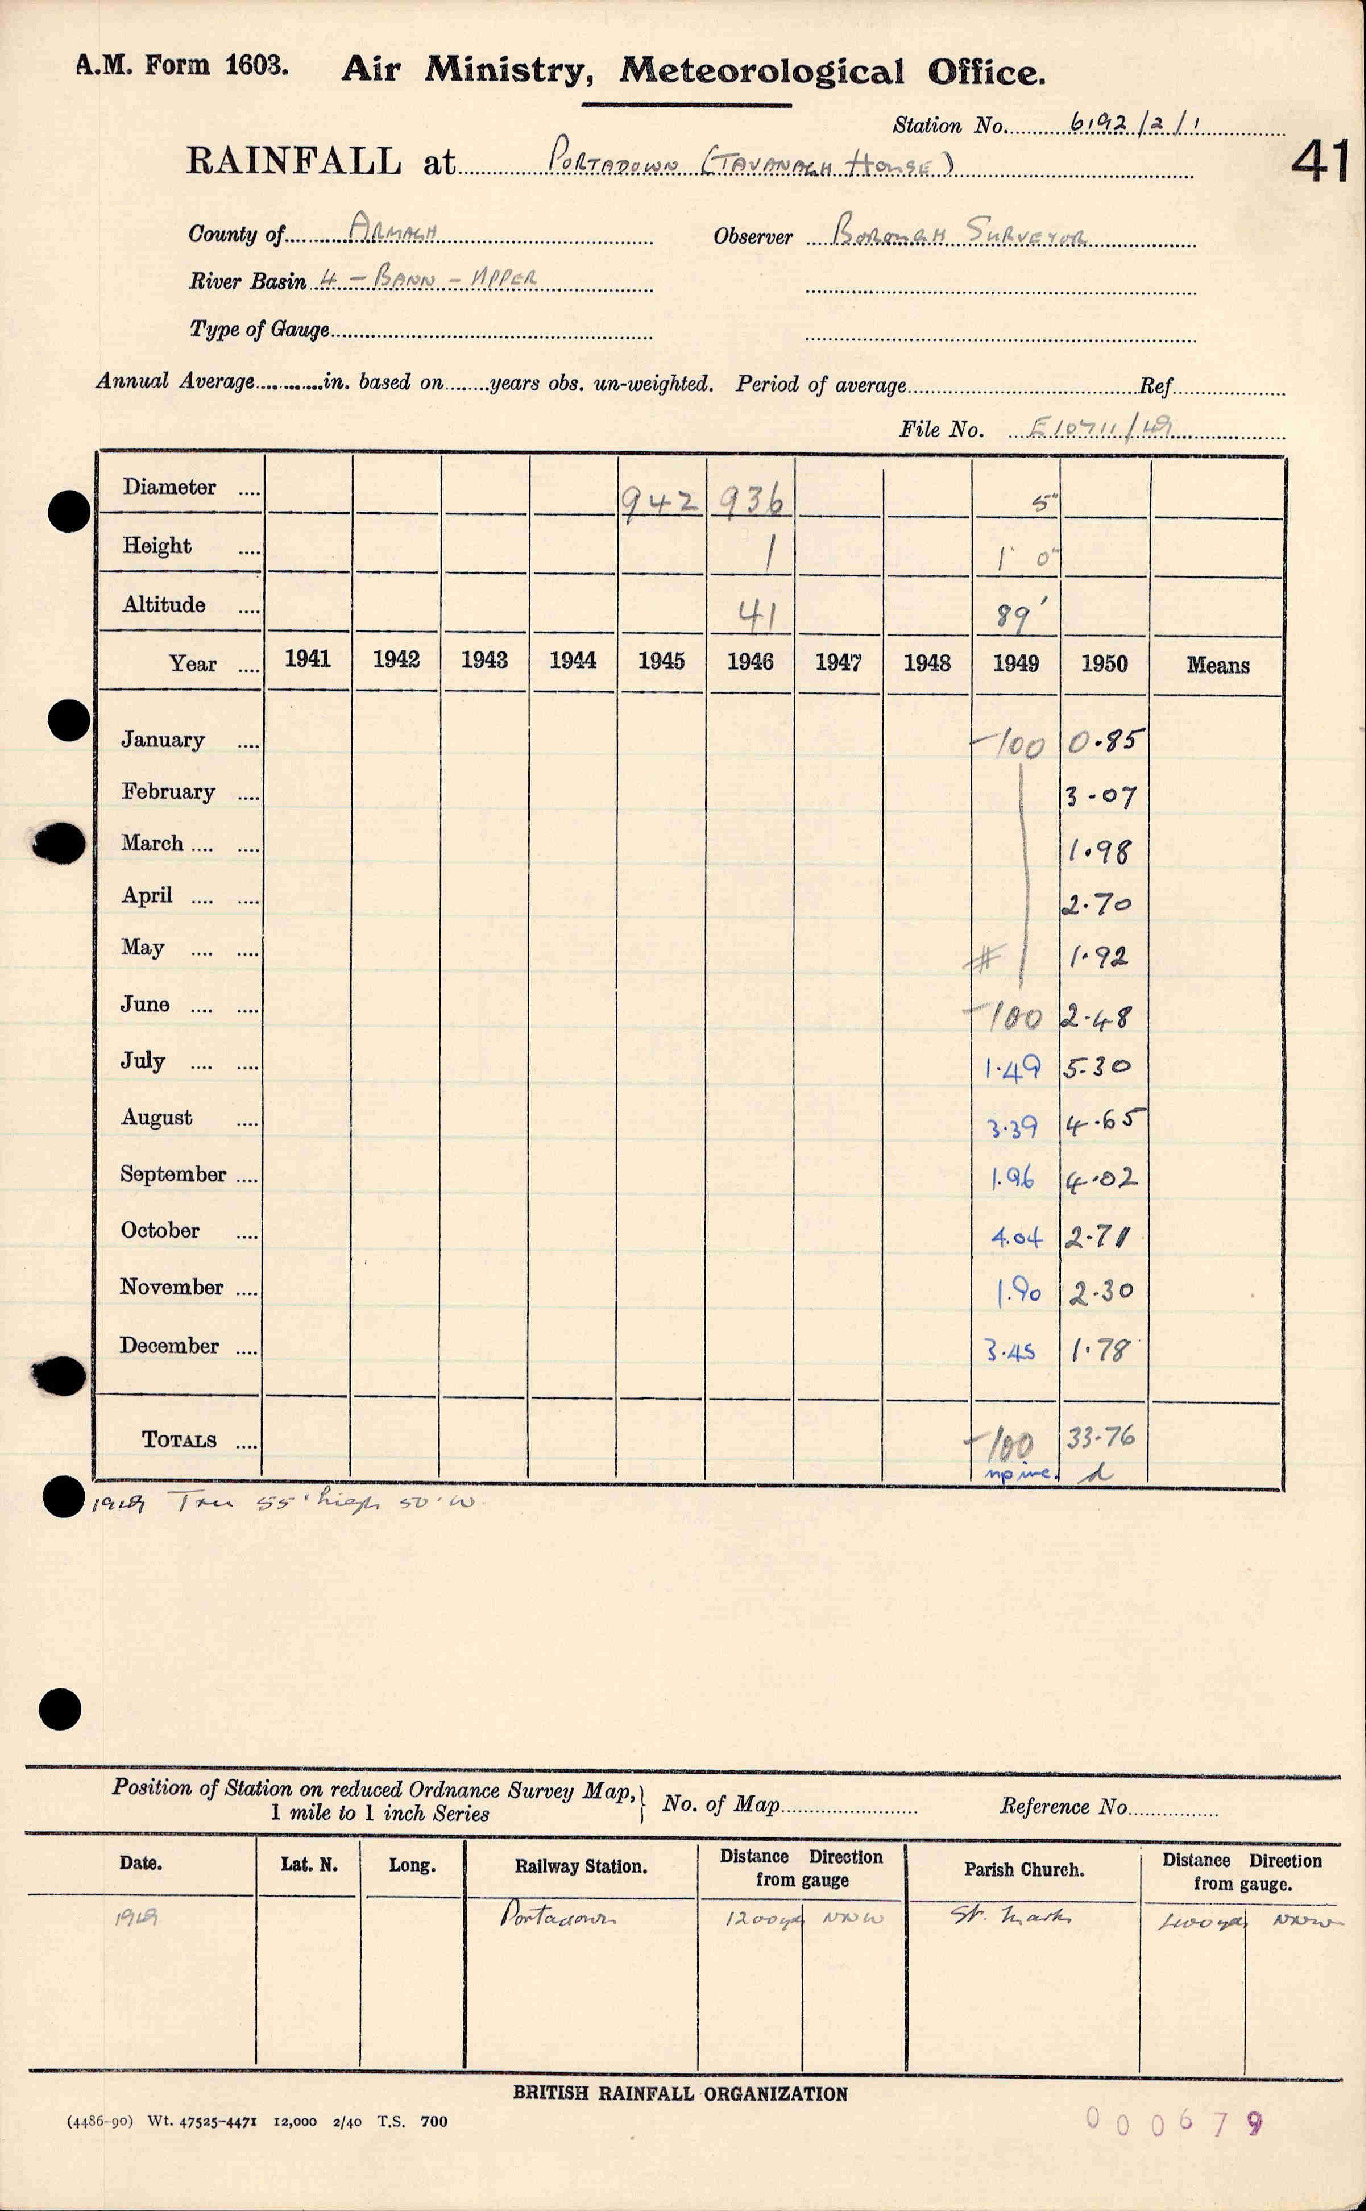 A.M. Form 1603. Air Ministry, Meteorological Office.
Station No. 6192/2/1
41
RAINFALL at PORTADOWN (TAVANAGH HOUSE)
County of ARMAGH Observer BOROUGH SURVEYOR
River Basin 4 - BANN - UPPER
Type of Gauge
Annual Average in. based on years obs. un-weighted. Period of average Ref
File No. E10711/49
Diameter .... 942 936 5"
Height .... 1 1' 0"
Altitude .... 41 89'
Year .... 1941 1942 1943 1944 1945 1946 1947 1948 1949 1950 Means
January .... -100 0.85
February .... 3.07
March .... .... 1.98
April .... .... 2.70
May .... .... # 1.92
June .... .... -100 2.48
July .... .... 1.49 5.30
August .... 3.39 4.65
September .... 1.96 4.02
October .... 4.04 2.71
November .... 1.90 2.30
December .... 3.45 1.78
TOTALS .... -100 33.76
inc. d
1949 Tree 55' high 50' W
Position of Station on reduced Ordnance Survey Map, } No. of Map Reference No.
1 mile to 1 inch Series
Date. Lat. N. Long. Railway Station. Distance Direction from gauge Parish Church. Distance Direction from gauge.
1949 Portadown 1200yd NNW St. Marks 400yd NNW
BRITISH RAINFALL ORGANIZATION
(4486-90) Wt. 47525-4471 12,000 2/40 T.S. 700
000679